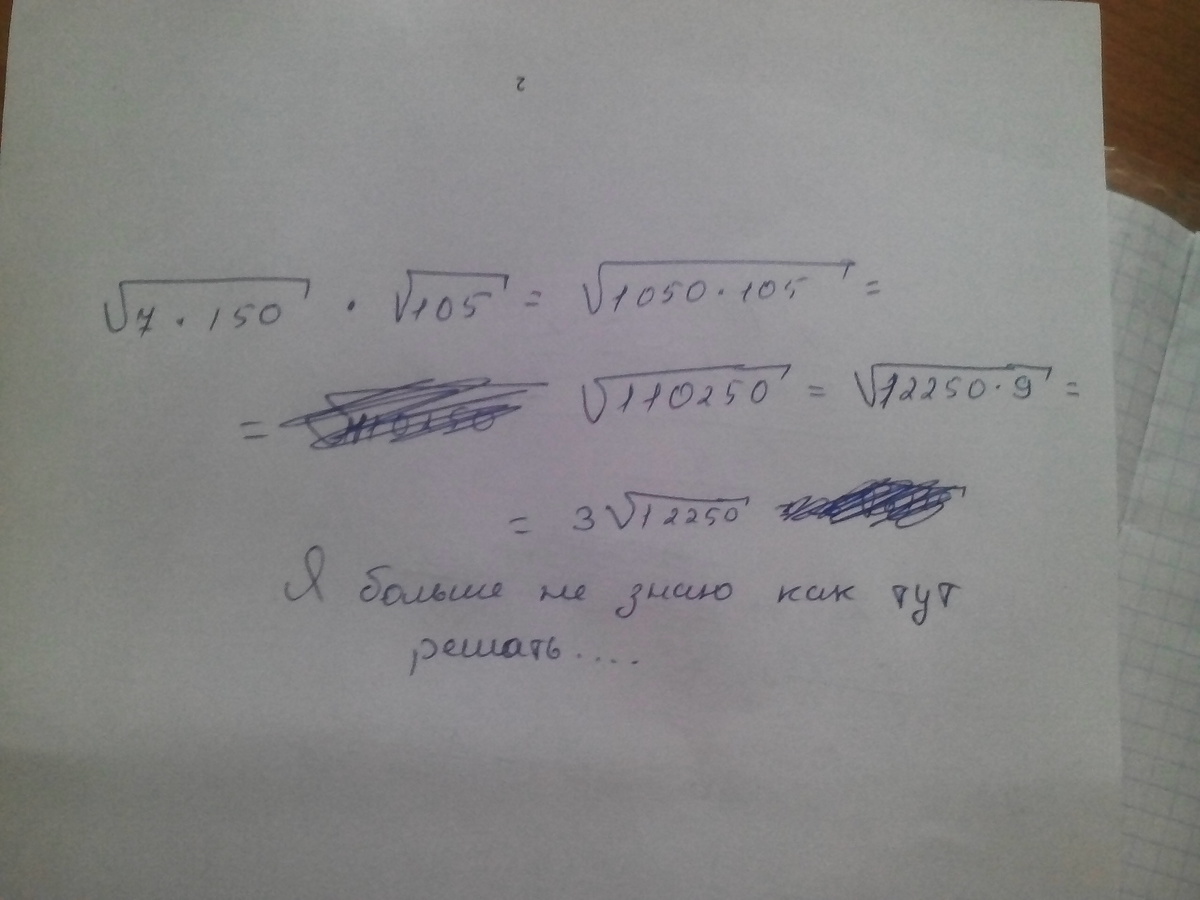 2
√7·150 · √105 = √1050·105 =
= √110250 = √12250·9 =
= 3√12250
Я больше не знаю как тут
решать....